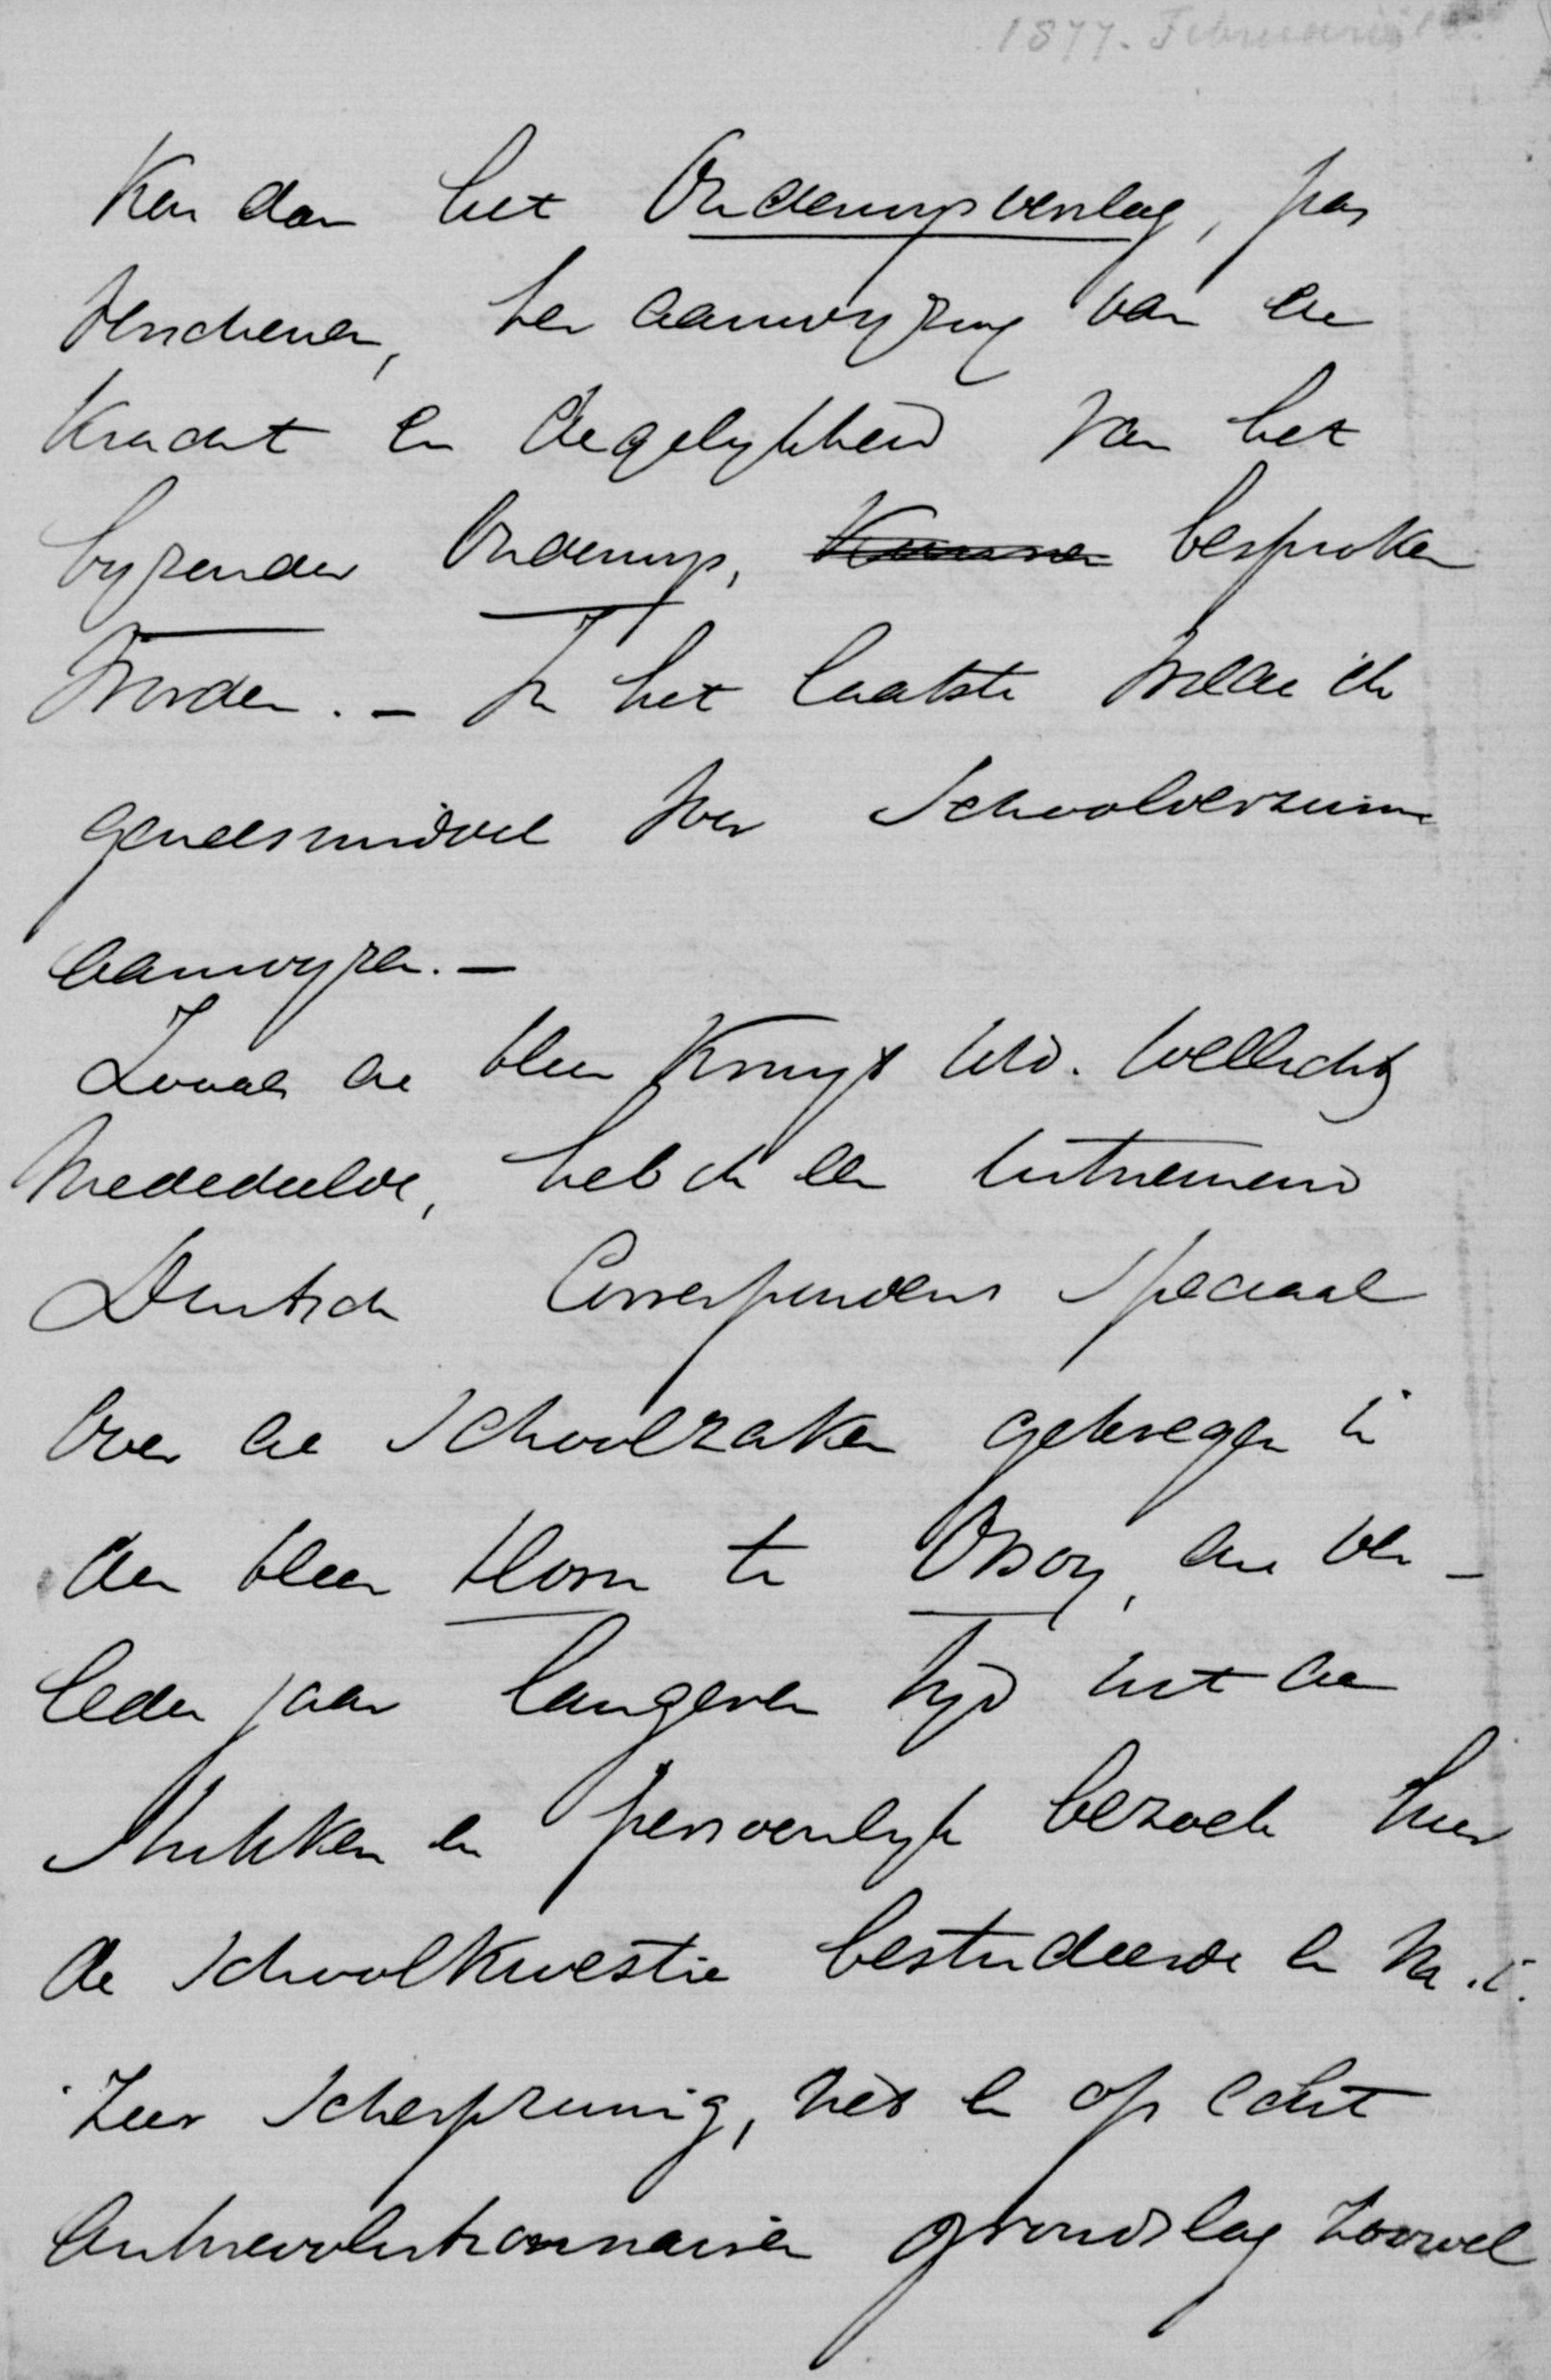 1877. Februari
Kan dan het Onderwysverslag, pas
verschenen, ter aanwyzing van de
Kracht en degelykheid van het
byzonder Onderwys, Kunnen besproken
worden. - In het laatste wilde ik
geneesmiddel voor Schoolverzuim
aanwyzen. -
Zooals de Heer Kruyt UEd. wellicht
mededeelde, heb ik een uitnemend
Duitsch Correspondent speciaal
over de Schoolzaken gekregen in
den Heer Horn te Orsoy, die ver-
leden jaar langeren tyd uit de
stukken en persoonlyk bezoek hier
de Schoolkwestie bestudeerde en m.i.
zeer scherpzinnig, net en op echt
Antirevolutionnairen grondslag zoowel